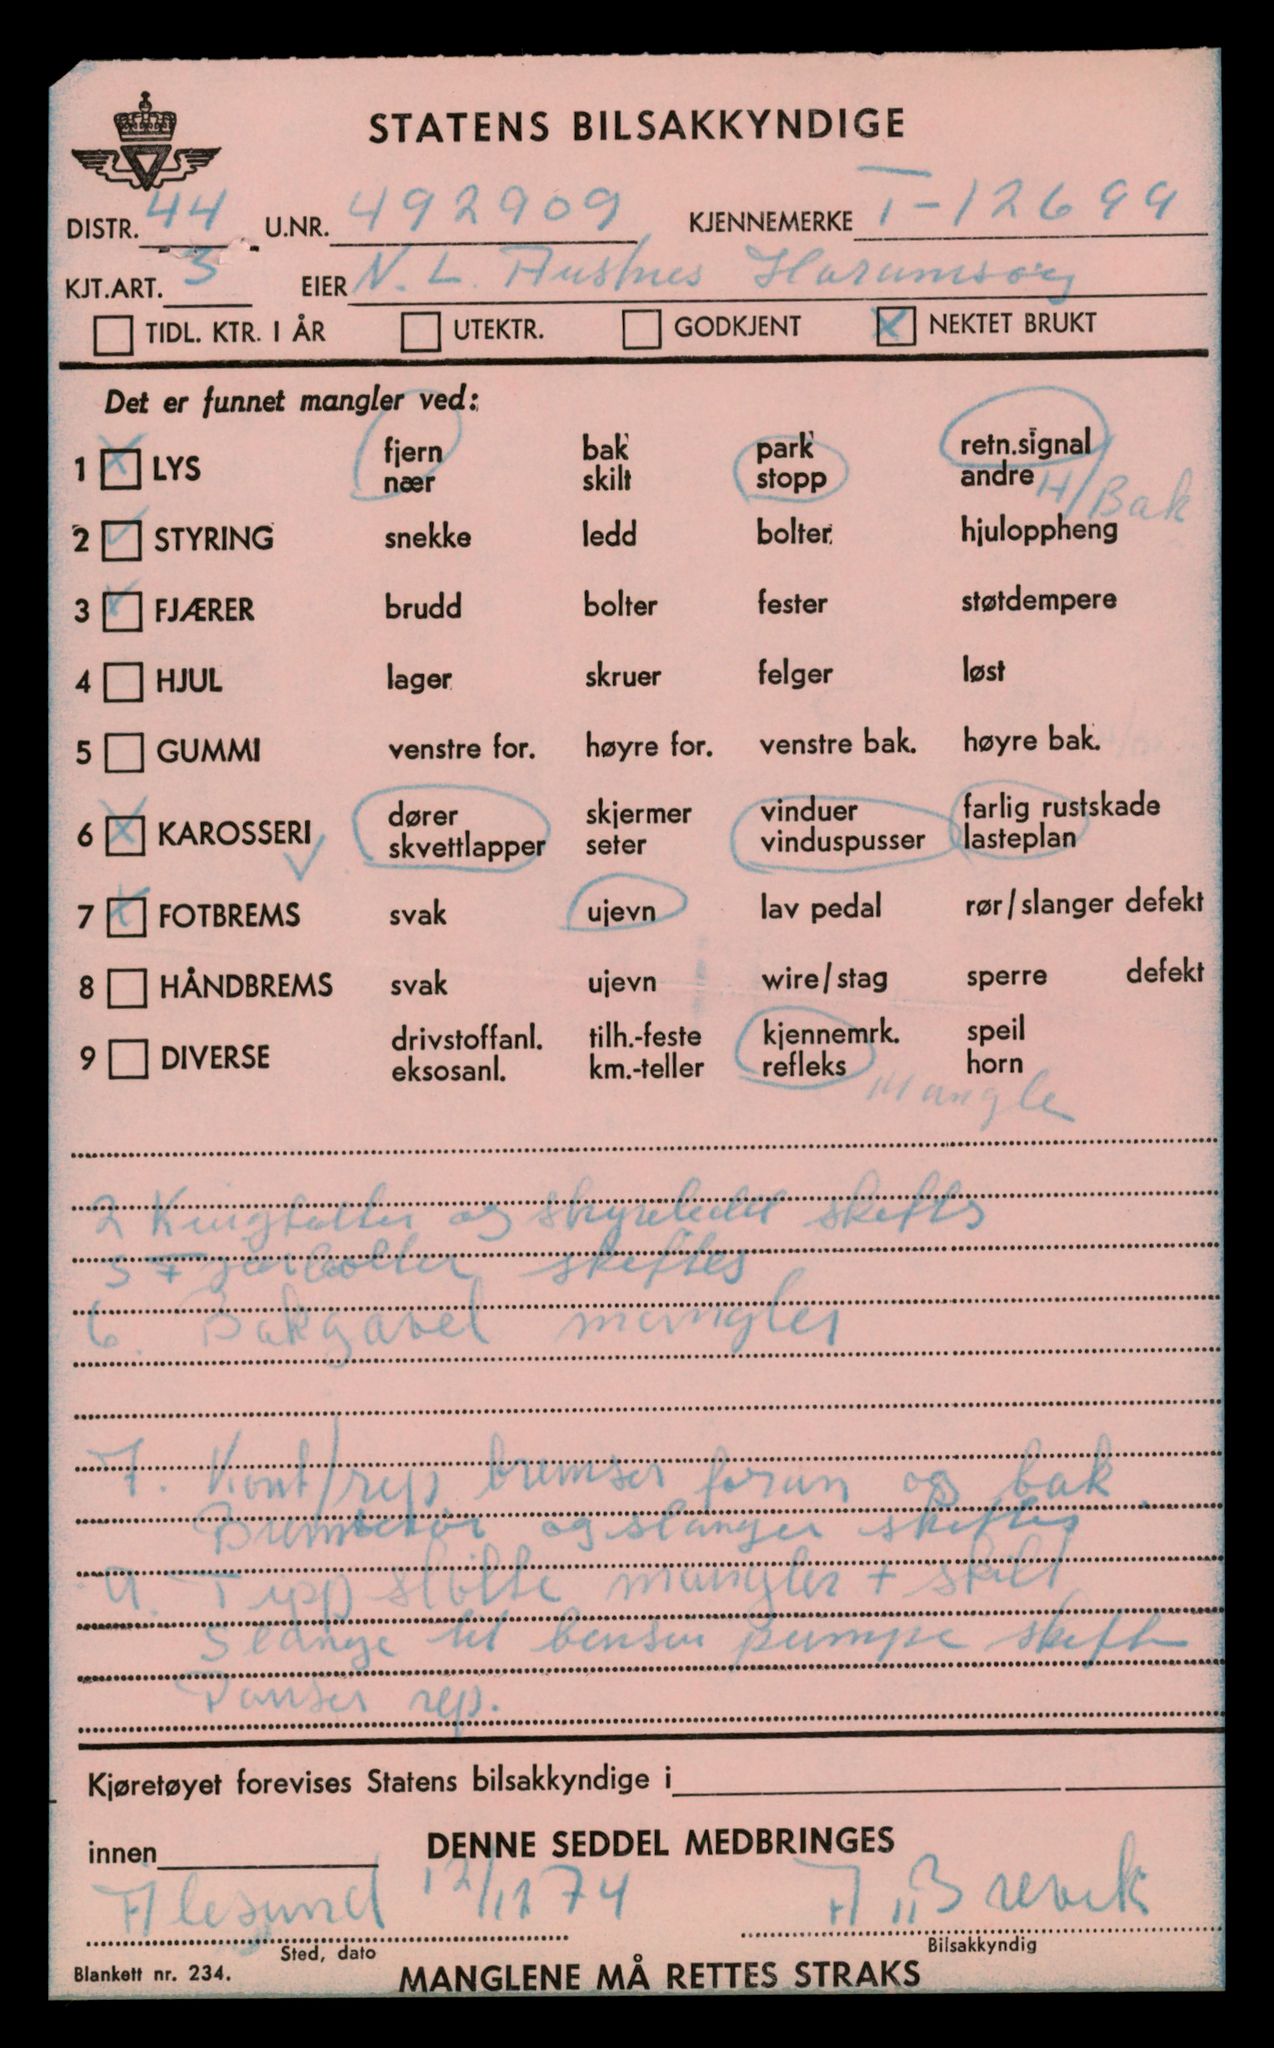 STATENS BILSAKKYNDIGE
DISTR. 44 U.NR. 492909 KJENNEMERKE T-12699
KJT.ART. 3 EIER N. L. Austnes Haramsøy
TIDL. KTR. I ÅR UTEKTR. GODKJENT X NEKTET BRUKT
Det er funnet mangler ved:
1 X LYS fjern bak park retn.signal
nær skilt stopp andre H/Bak
2 ✓ STYRING snekke ledd bolter hjuloppheng
3 ✓ FJÆRER brudd bolter fester støtdempere
4 HJUL lager skruer felger løst
5 GUMMI venstre for. høyre for. venstre bak. høyre bak.
6 X KAROSSERI ✓ dører skjermer vinduer farlig rustskade
skvettlapper seter vinduspusser lasteplan
7 X FOTBREMS svak ujevn lav pedal rør/slanger defekt
8 HÅNDBREMS svak ujevn wire/stag sperre defekt
9 DIVERSE drivstoffanl. tilh.-feste kjennemrk. speil
eksosanl. km.-teller refleks horn
Mangle
2 Kingbolter og styreledd skiftes
3 Fjærbolter skiftes
6. Bakgavel mangler
7. Kont/rep bremser foran og bak.
Bremserør og slanger skiftes
9. Tipp støtte mangler + skilt
Slange til bensin pumpe skift
Panser rep.
Kjøretøyet forevises Statens bilsakkyndige i
innen DENNE SEDDEL MEDBRINGES
Ålesund 12/12 74 A. Brevik
Sted, dato Bilsakkyndig
Blankett nr. 234. MANGLENE MÅ RETTES STRAKS